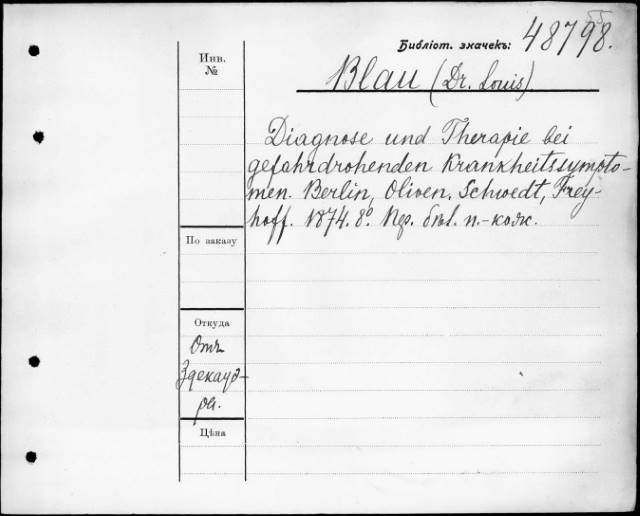 Библіот. значекъ: 48798.
Инв.
№
Blau (Dr. Louis)
Diagnose und Therapie bei
gefahrdrohenden Krankheitssympto-
men. Berlin, Oliven. Schwedt, Frey-
hoff. 1874. 8°. п.-кож.
По заказу
Откуда
Отъ
Здекауэ-
ра.
Цѣна